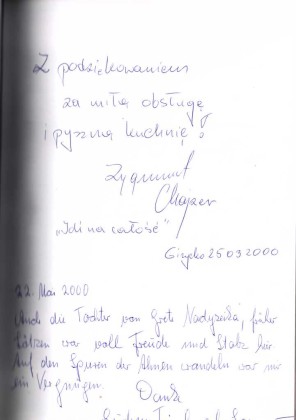 Z podziękowaniem
za miłą obsługę
i pyszną kuchnię!
Zygmunt
Chajzer
„Idź na całość”
Giżycko 25 03 2000
22. Mai 2000
Auch die Tochter von Grete früher
war voll Freude und Stolz hier
Auf den Spuren der Ahnen wandeln war mir
ein Vergnügen.
Danke